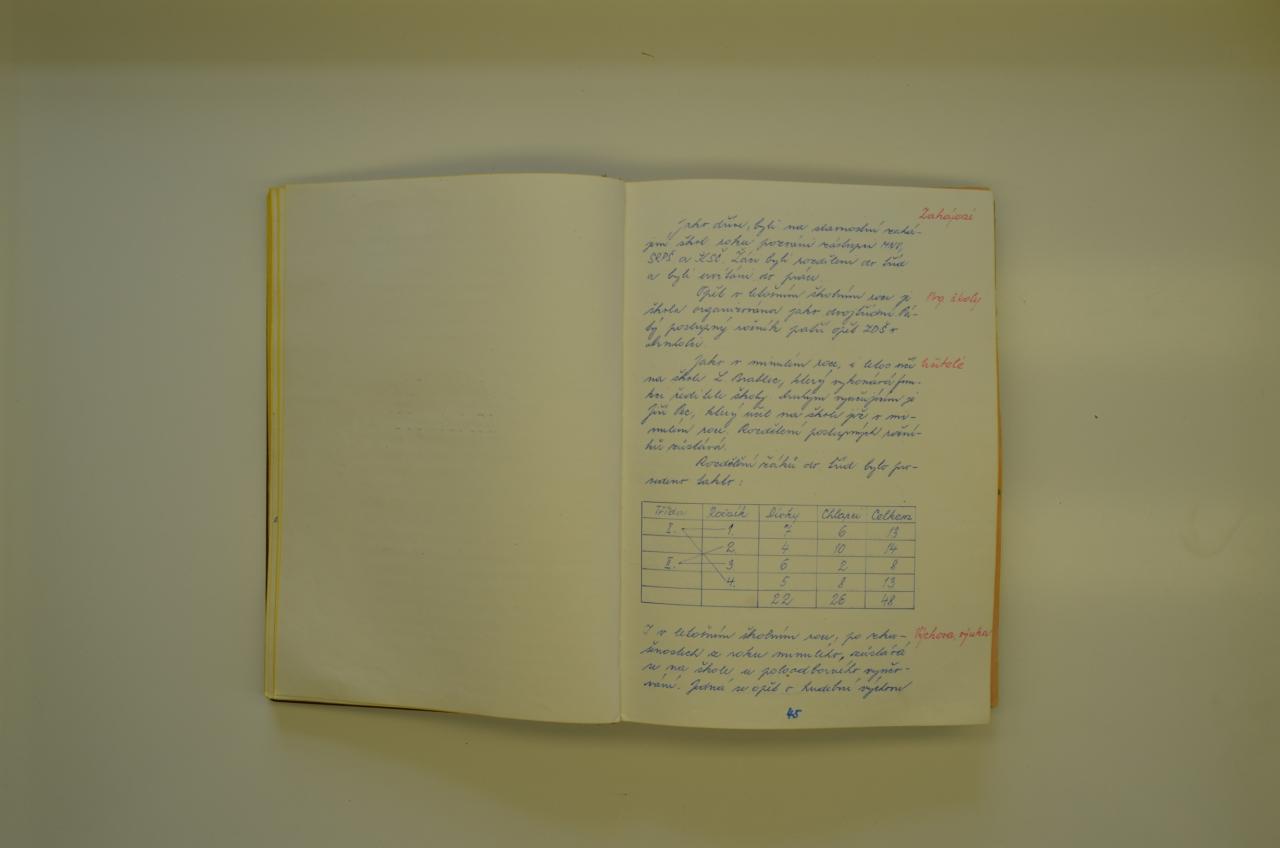 Zahájení
Jako dříve, byli na slavnostní zahá-
jení škol. roku pozváni zástupci MNV,
SRPŠ a KSČ. Žáci byli rozděleni do tříd
a byli uvítáni do práce.
Opět v letošním školním roce je
Org. školy
škola organizována jako dvojtřídní. Pá-
tý postupný ročník patří opět ZDŠ v
Jako v minulém roce, i letos učí
Učitelé
na škole L. Brablec, který vykonává fun-
kci ředitele školy. Druhým vyučujícím je
Jiří Pec, který učil na škole již v mi-
nulém roce. Rozdělení postupných roční-
ků zůstává.
Rozdělení žáků do tříd bylo pro-
vedeno takto:
Třída Ročník Dívky Chlapci Celkem
I. 1. 7 6 13
2. 4 10 14
II. 3. 6 2 8
4. 5 8 13
22 26 48
I v letošním školním roce, po zku-
Výchova, výuka
šenostech z roku minulého, zůstává
se na škole u poloodborného vyučo-
vání. Jedná se opět o hudební výchovu
45